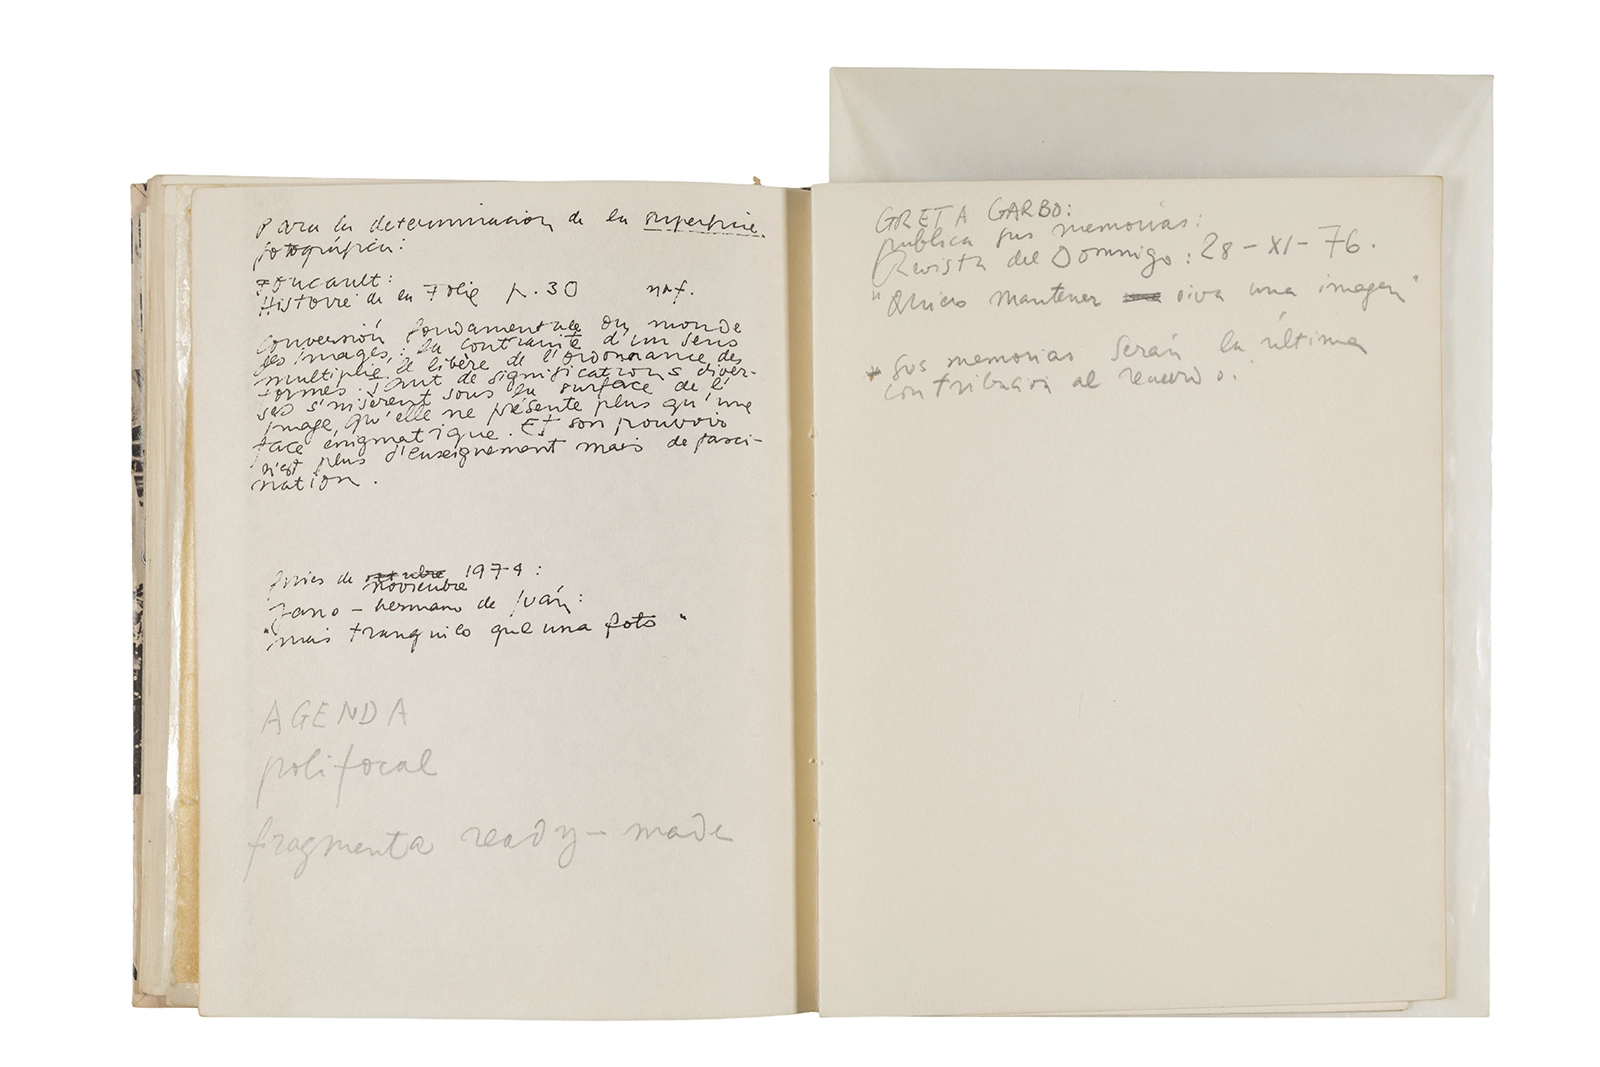 Para la determinacion de la superficie
fotográfica:
Foucault:
Histoire de la Folie p. 30 nrf.
Conversión fondamentale du monde
des images,: la contrainte d'un sens
multiplié le libère de l'ordonnance des
formes. Tant de significations diver-
ses s'insèrent sous la surface de l'
image, qu'elle ne présente plus qu'une
face énigmatique. Et son pouvoir
n'est plus d'enseignement mais de fasci-
nation.
fines de octubre 1974:
noviembre
hermano de Iván:
"mas tranquilo que una foto"
AGENDA
polifocal
fragmenta ready-made
GRETA GARBO:
publica sus memorias:
Revista del Domingo: 28-XI-76.
"Quiero mantener viva una imagen"
Sus memorias serán la última
contribución al recuerdo.